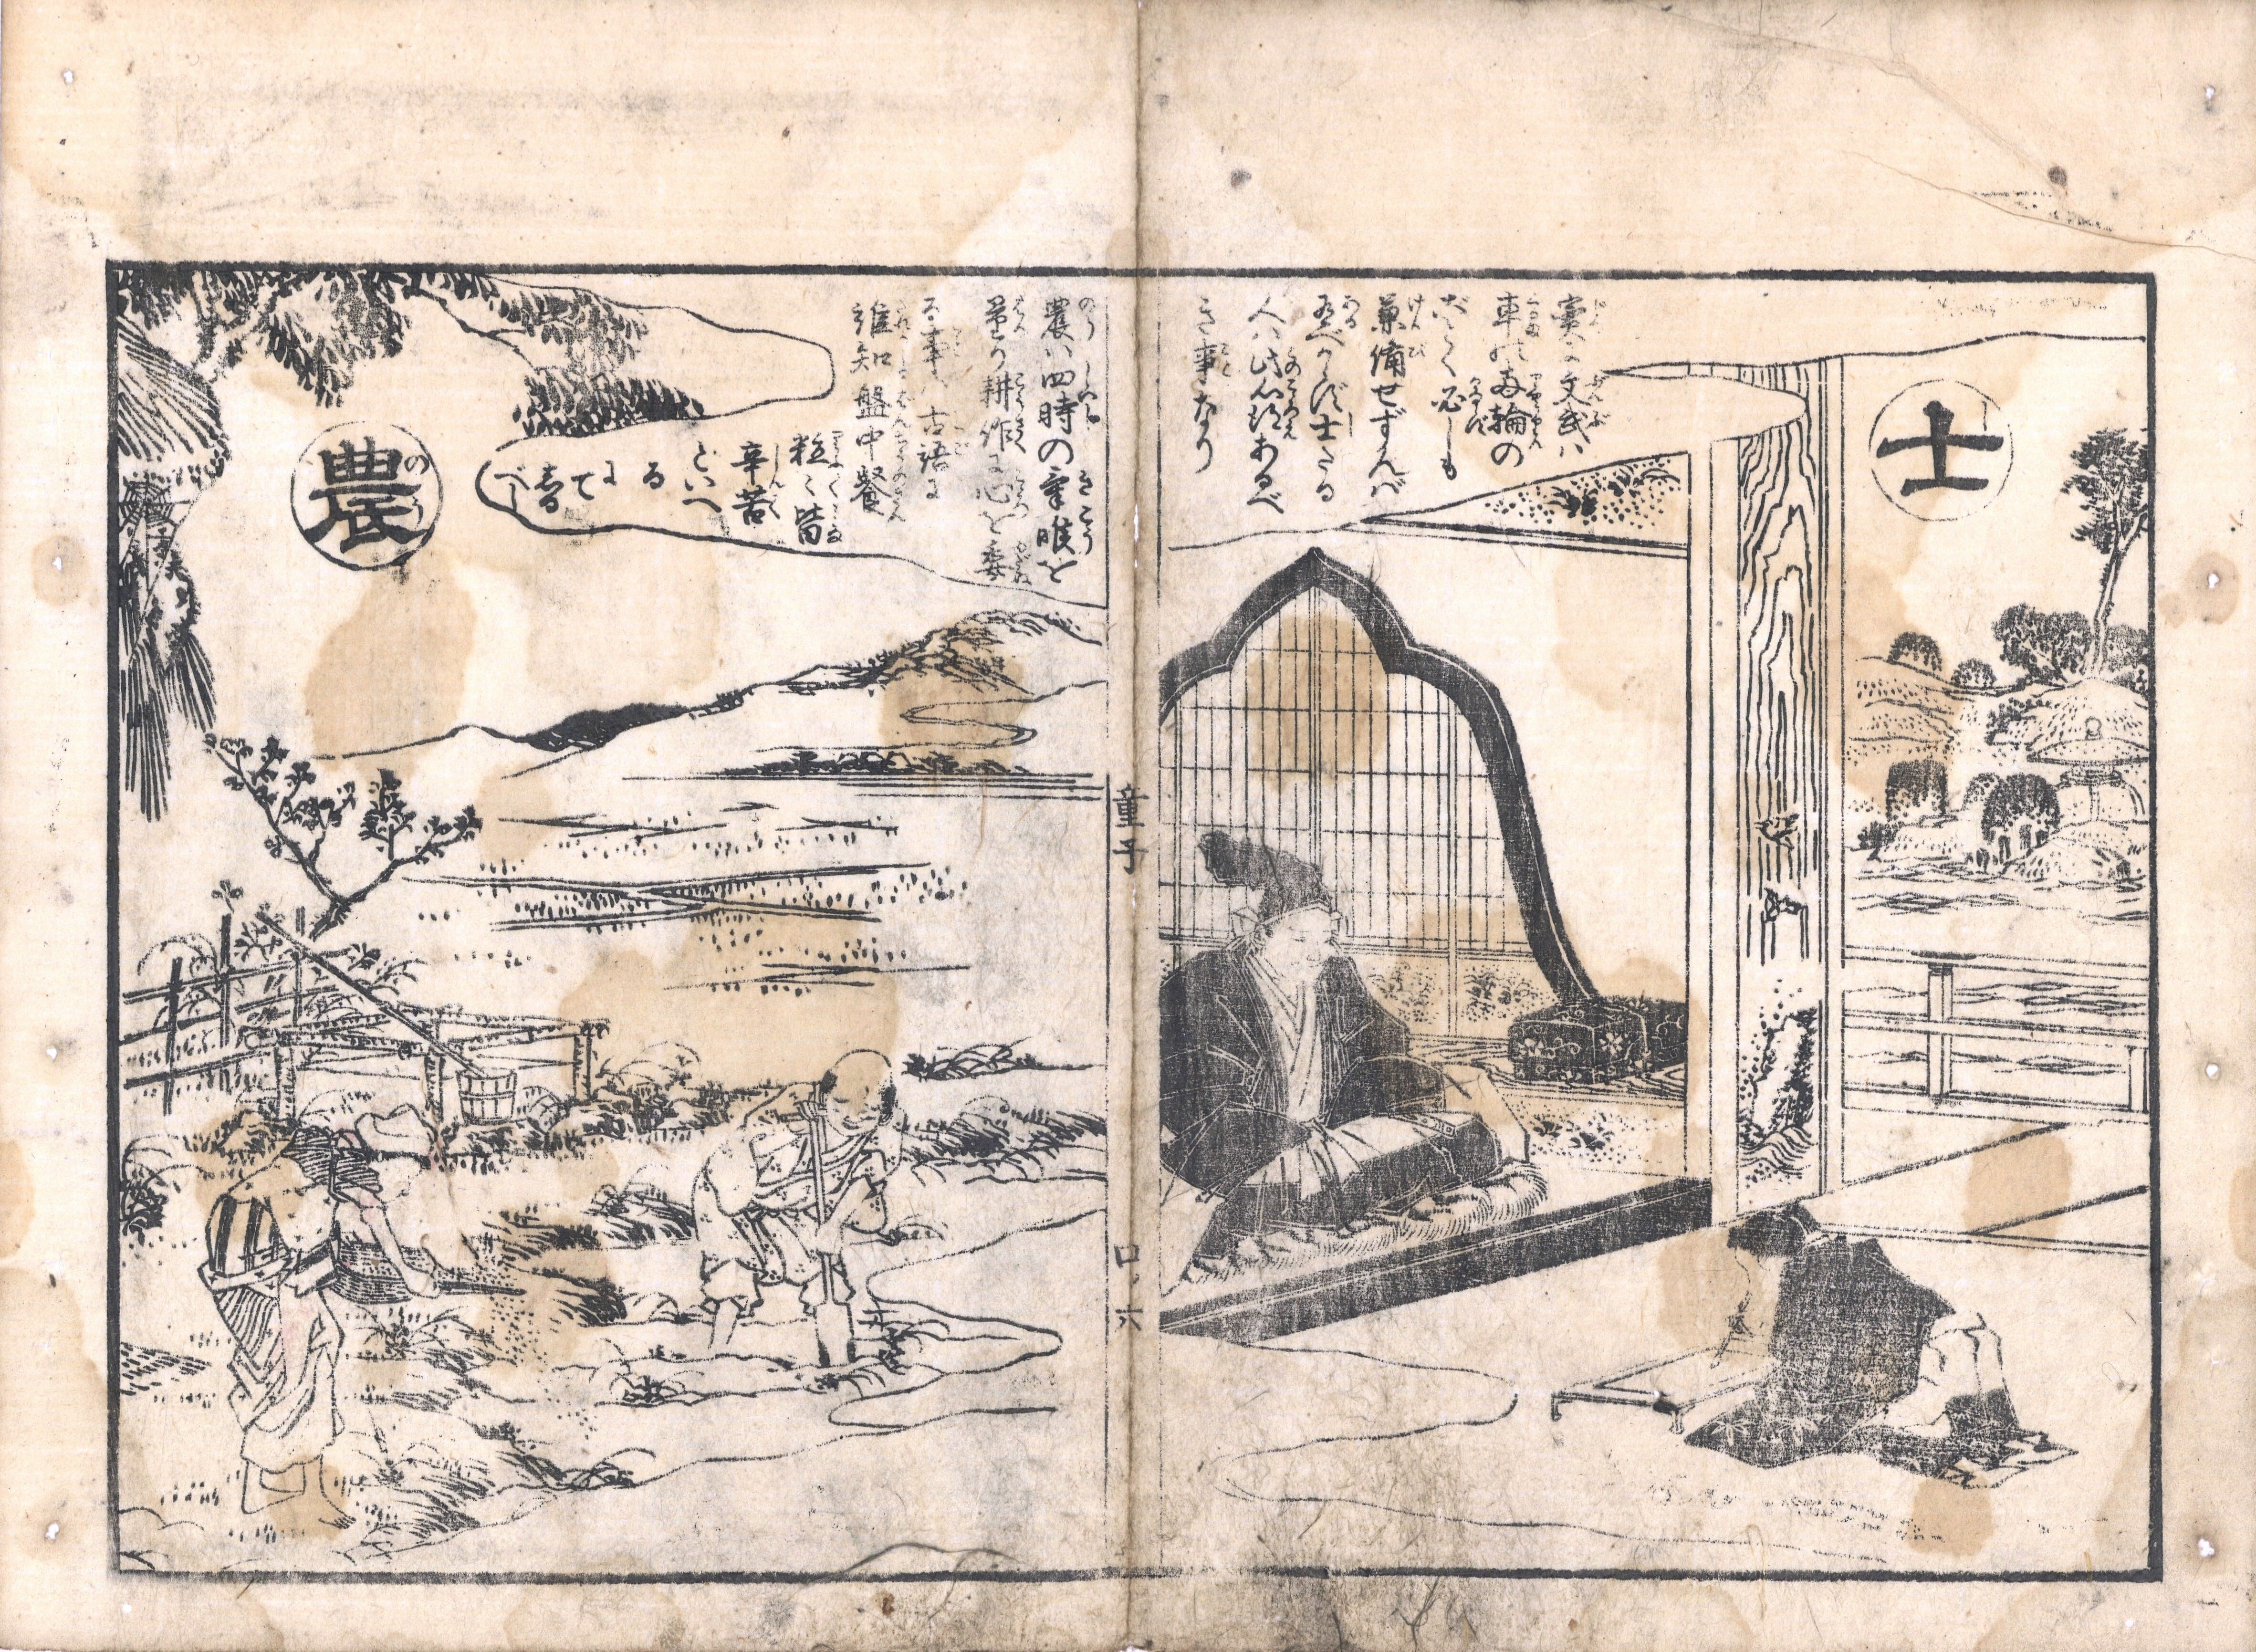 士
實に文武ハ
車の両輪の
ごとく必しも
兼備せずんバ
有べからず士たる
人ハ此心得あるべ
き事なり
童子
口ノ六
農
農ハ四時の季候を
量り耕作に心を委
る事ハ古語に
誰知盤中餐
粒々皆
辛苦
といへ
る
に
て
べし